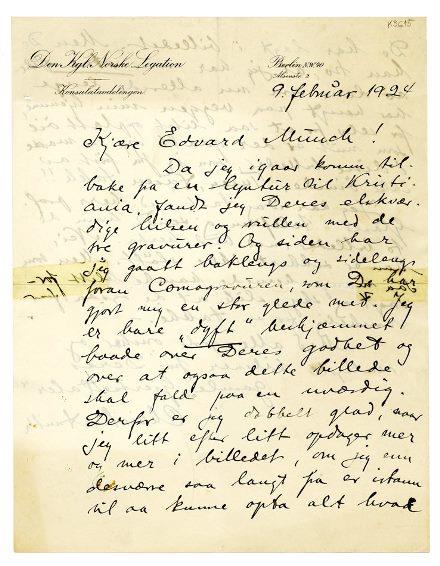 K3615
Den Kgl. Norske Legation
Konsulatavdelingen
Berlin N.W. 40
Alsenstr. 2
9. februar 1924
Kjære Edvard Munch!
Da jeg igaar komm til-
bake fra en lyntur til Kristi-
ania, fandt jeg Deres elskvær-
dige hilsen og rullen med de
tre gravurer. Og siden har
jeg gaatt baklengs og sidelengs
foran Comogravuren, som De har
gjort mig en stor glede med. Jeg
er bare "dypt" beskjæmmet
baade over Deres godhet og
over at ogsaa dette billede
skal fald paa en uværdig.
Derfor er jeg dobbelt glad, naar
jeg litt efter litt opdager mer
og mer i billedet, om jeg enn
desværre saa langt fra er istann
til aa kunne opta alt hvad